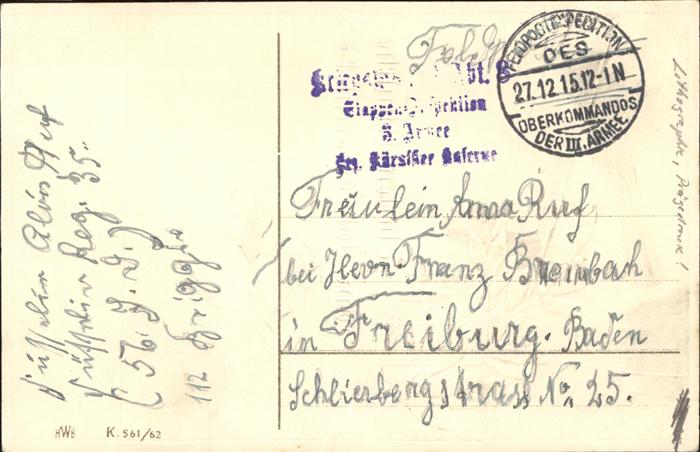 Feldp
FELDPOSTEXPEDITION
DES
27.12.15.12-1N
OBERKOMMANDOS
DER III. ARMEE
Abt.
Etappen-Inspektion
3. Armee
Kaserne
Fräulein Anna Ruf
bei Herrn Franz Brombach
in Freiburg. Baden
Schlierbergstrass No. 25.
Füsselier Alois Ruf
Füsselier Reg. 35.
(56. I. D.)
112
HWB K. 561/62
Lithographie, Prägedruck!